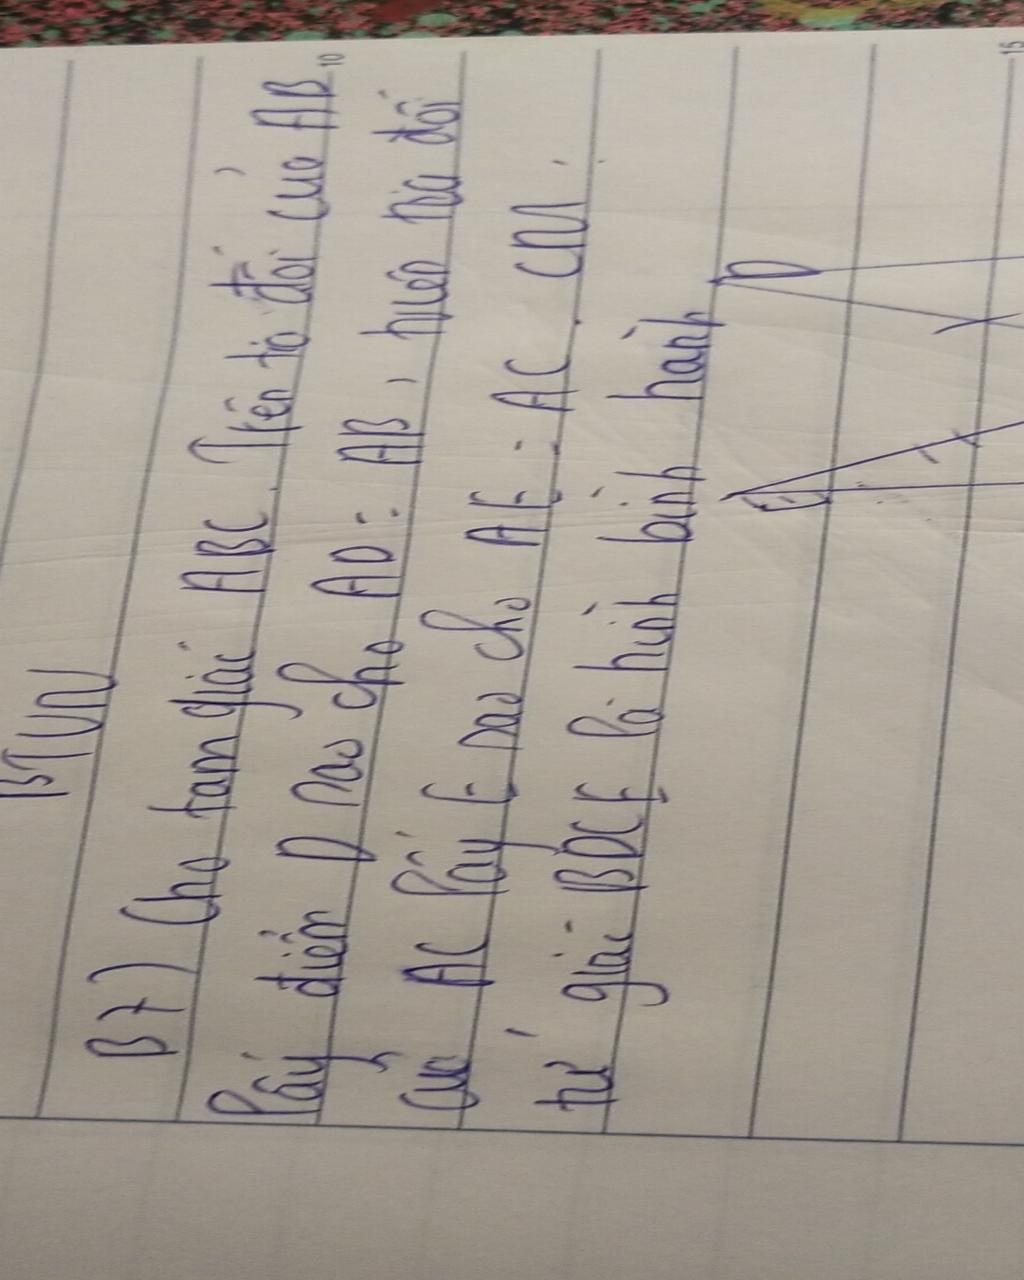 BTVN
B7) Cho tam giác ABC. Trên tia đối của AB
lấy điểm D sao cho AD = AB, trên tia đối
của AC lấy E sao cho AE = AC. CM.
tứ giác BDCE là hình bình hành
E D
10
15